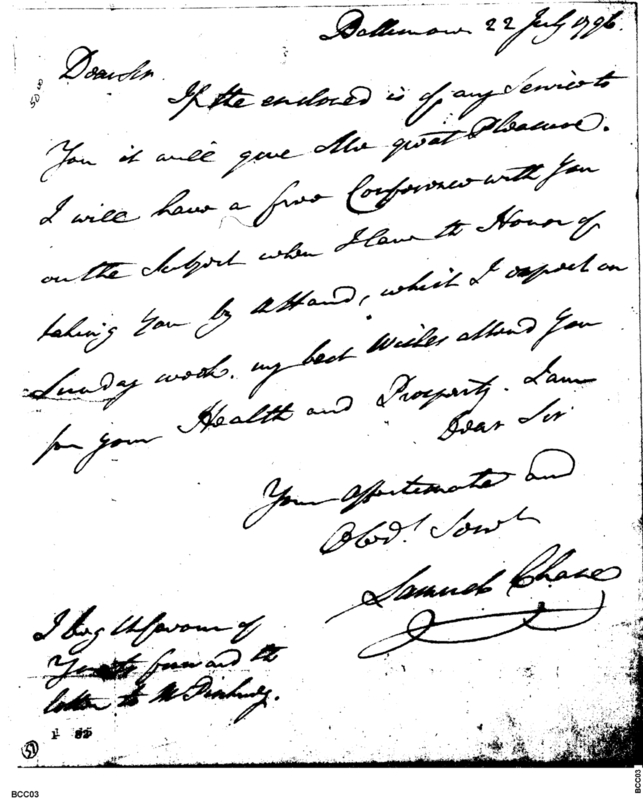 Baltimore 22 July 1796.
Dear Sir
If the enclosed is of any Service to
You it will give Me great Pleasure.
I will have a free Conference with You
on the Subject when I have the Honor of
taking You by the Hand, which I expect on
Sunday week. my best Wishes attend You
for your Health and Prosperity. I am
Dear Sir
Your affectionate and
Obedt. Servt.
Samuel Chase
I beg the favour of
You to forward the
letter to Mr
51
BCC03
BCC03